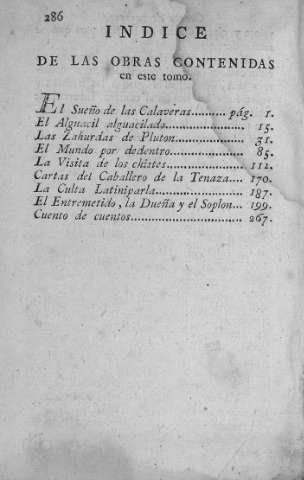 286
INDICE
DE LAS OBRAS CONTENIDAS
en este tomo.
El Sueño de las Calaveras......... pág. 1.
El Alguacil alguacilado...................... 15.
Las Zahurdas de Pluton.................... 31.
El Mundo por dedentro.................... 85.
La Visita de los chistes.................... 111.
Cartas del Caballero de la Tenaza.... 170.
La Culta Latiniparla...................... 187.
El Entremetido, la Dueña y el Soplon... 199.
Cuento de cuentos........................... 267.